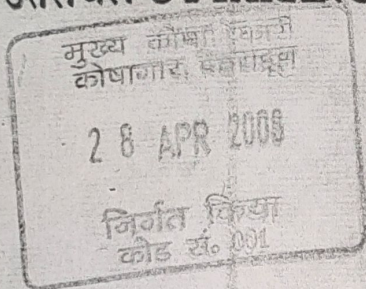 मुख्य कोषाधिकारी
कोषागार, देहरादून
28 APR 2008
निर्गत किया
कोड सं० 001